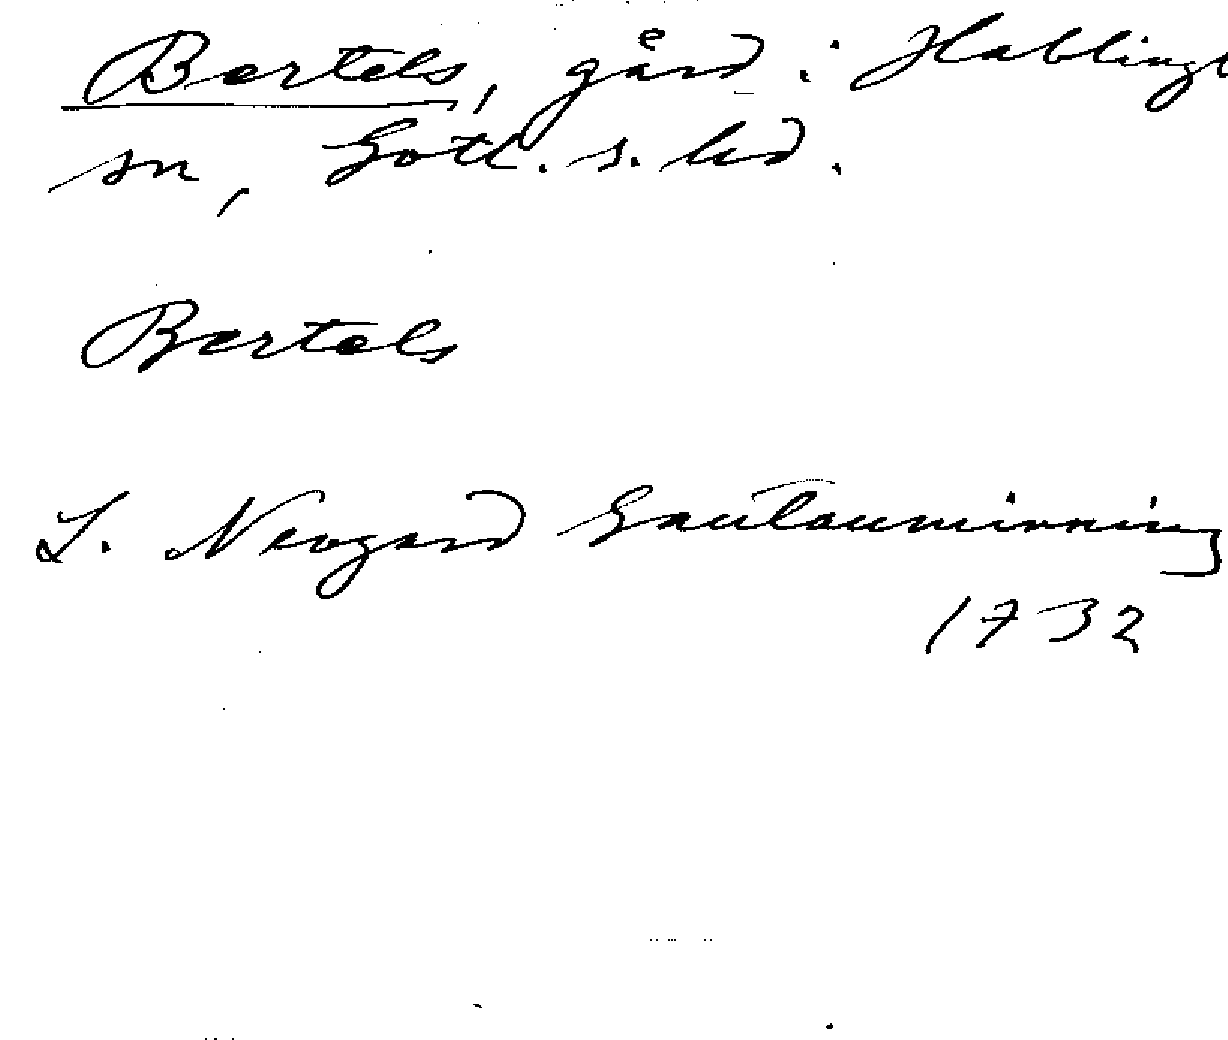 Bertels, gård i Hablingb
sn, Gotl. s. hd.
Bertels
L. Neogard Gautauminning
1732